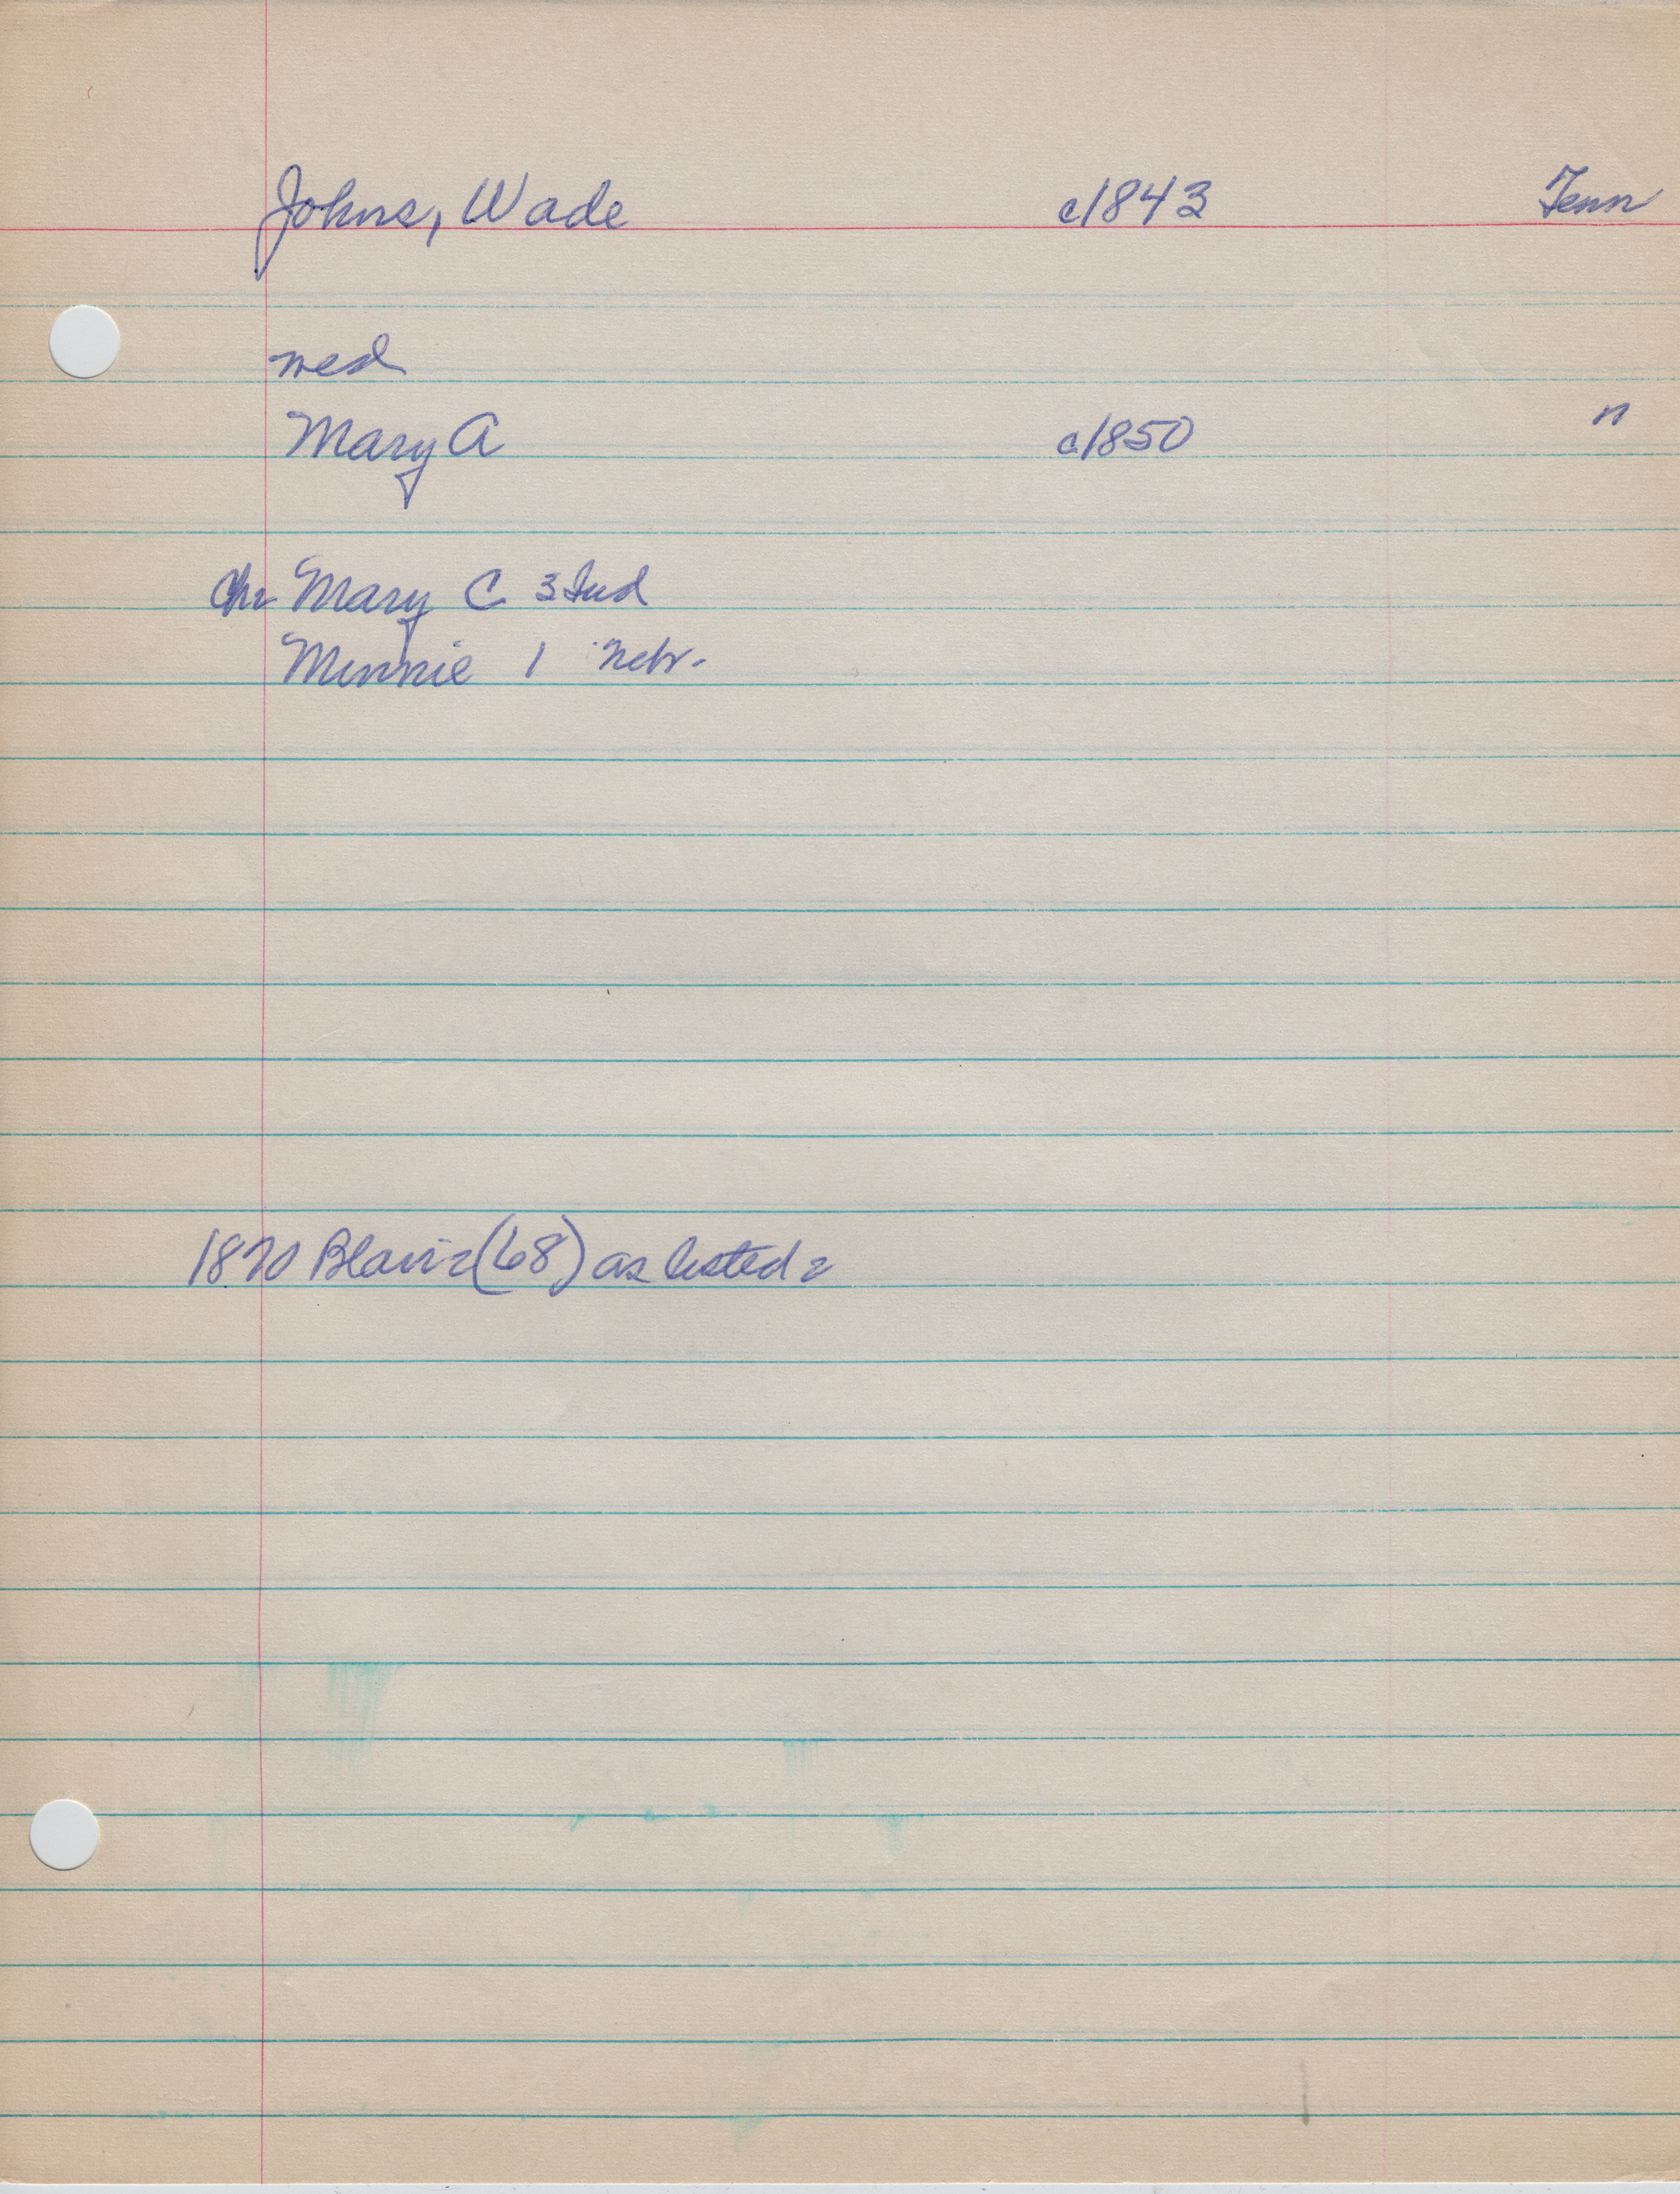 Johns, Wade c1843 Tenn
med
Mary A c1850 "
Ch: Mary C 3 Ind
Minnie 1 Nebr.
1870 Blair (68) as listed: